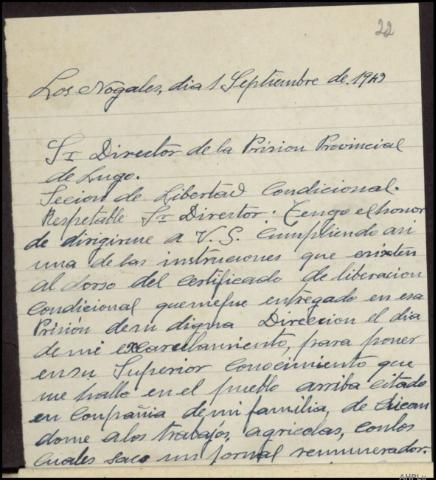 22
Los Nogales, dia 1 Septiembre de 1943
Sr Director de la Prision Provincial
de Lugo.
Secion de Libertad Condicional.
Respetable Sr Director: Tengo el honor
de dirigirme a V.S. Cumpliendo asi
una de las instruciones que existen
al dorso del certificado de liberacion
Condicional que me fue entregado en esa
Prision de su digna Direccion el dia
de mi excarcelamiento, para poner
en su Superior Conocimiento que
me hallo en el pueblo arriba citado
en Compañia de mi familia, de dican
dome a los trabajos, agricolas, con los
Cuales saco un jornal remunerador.
AHPLu